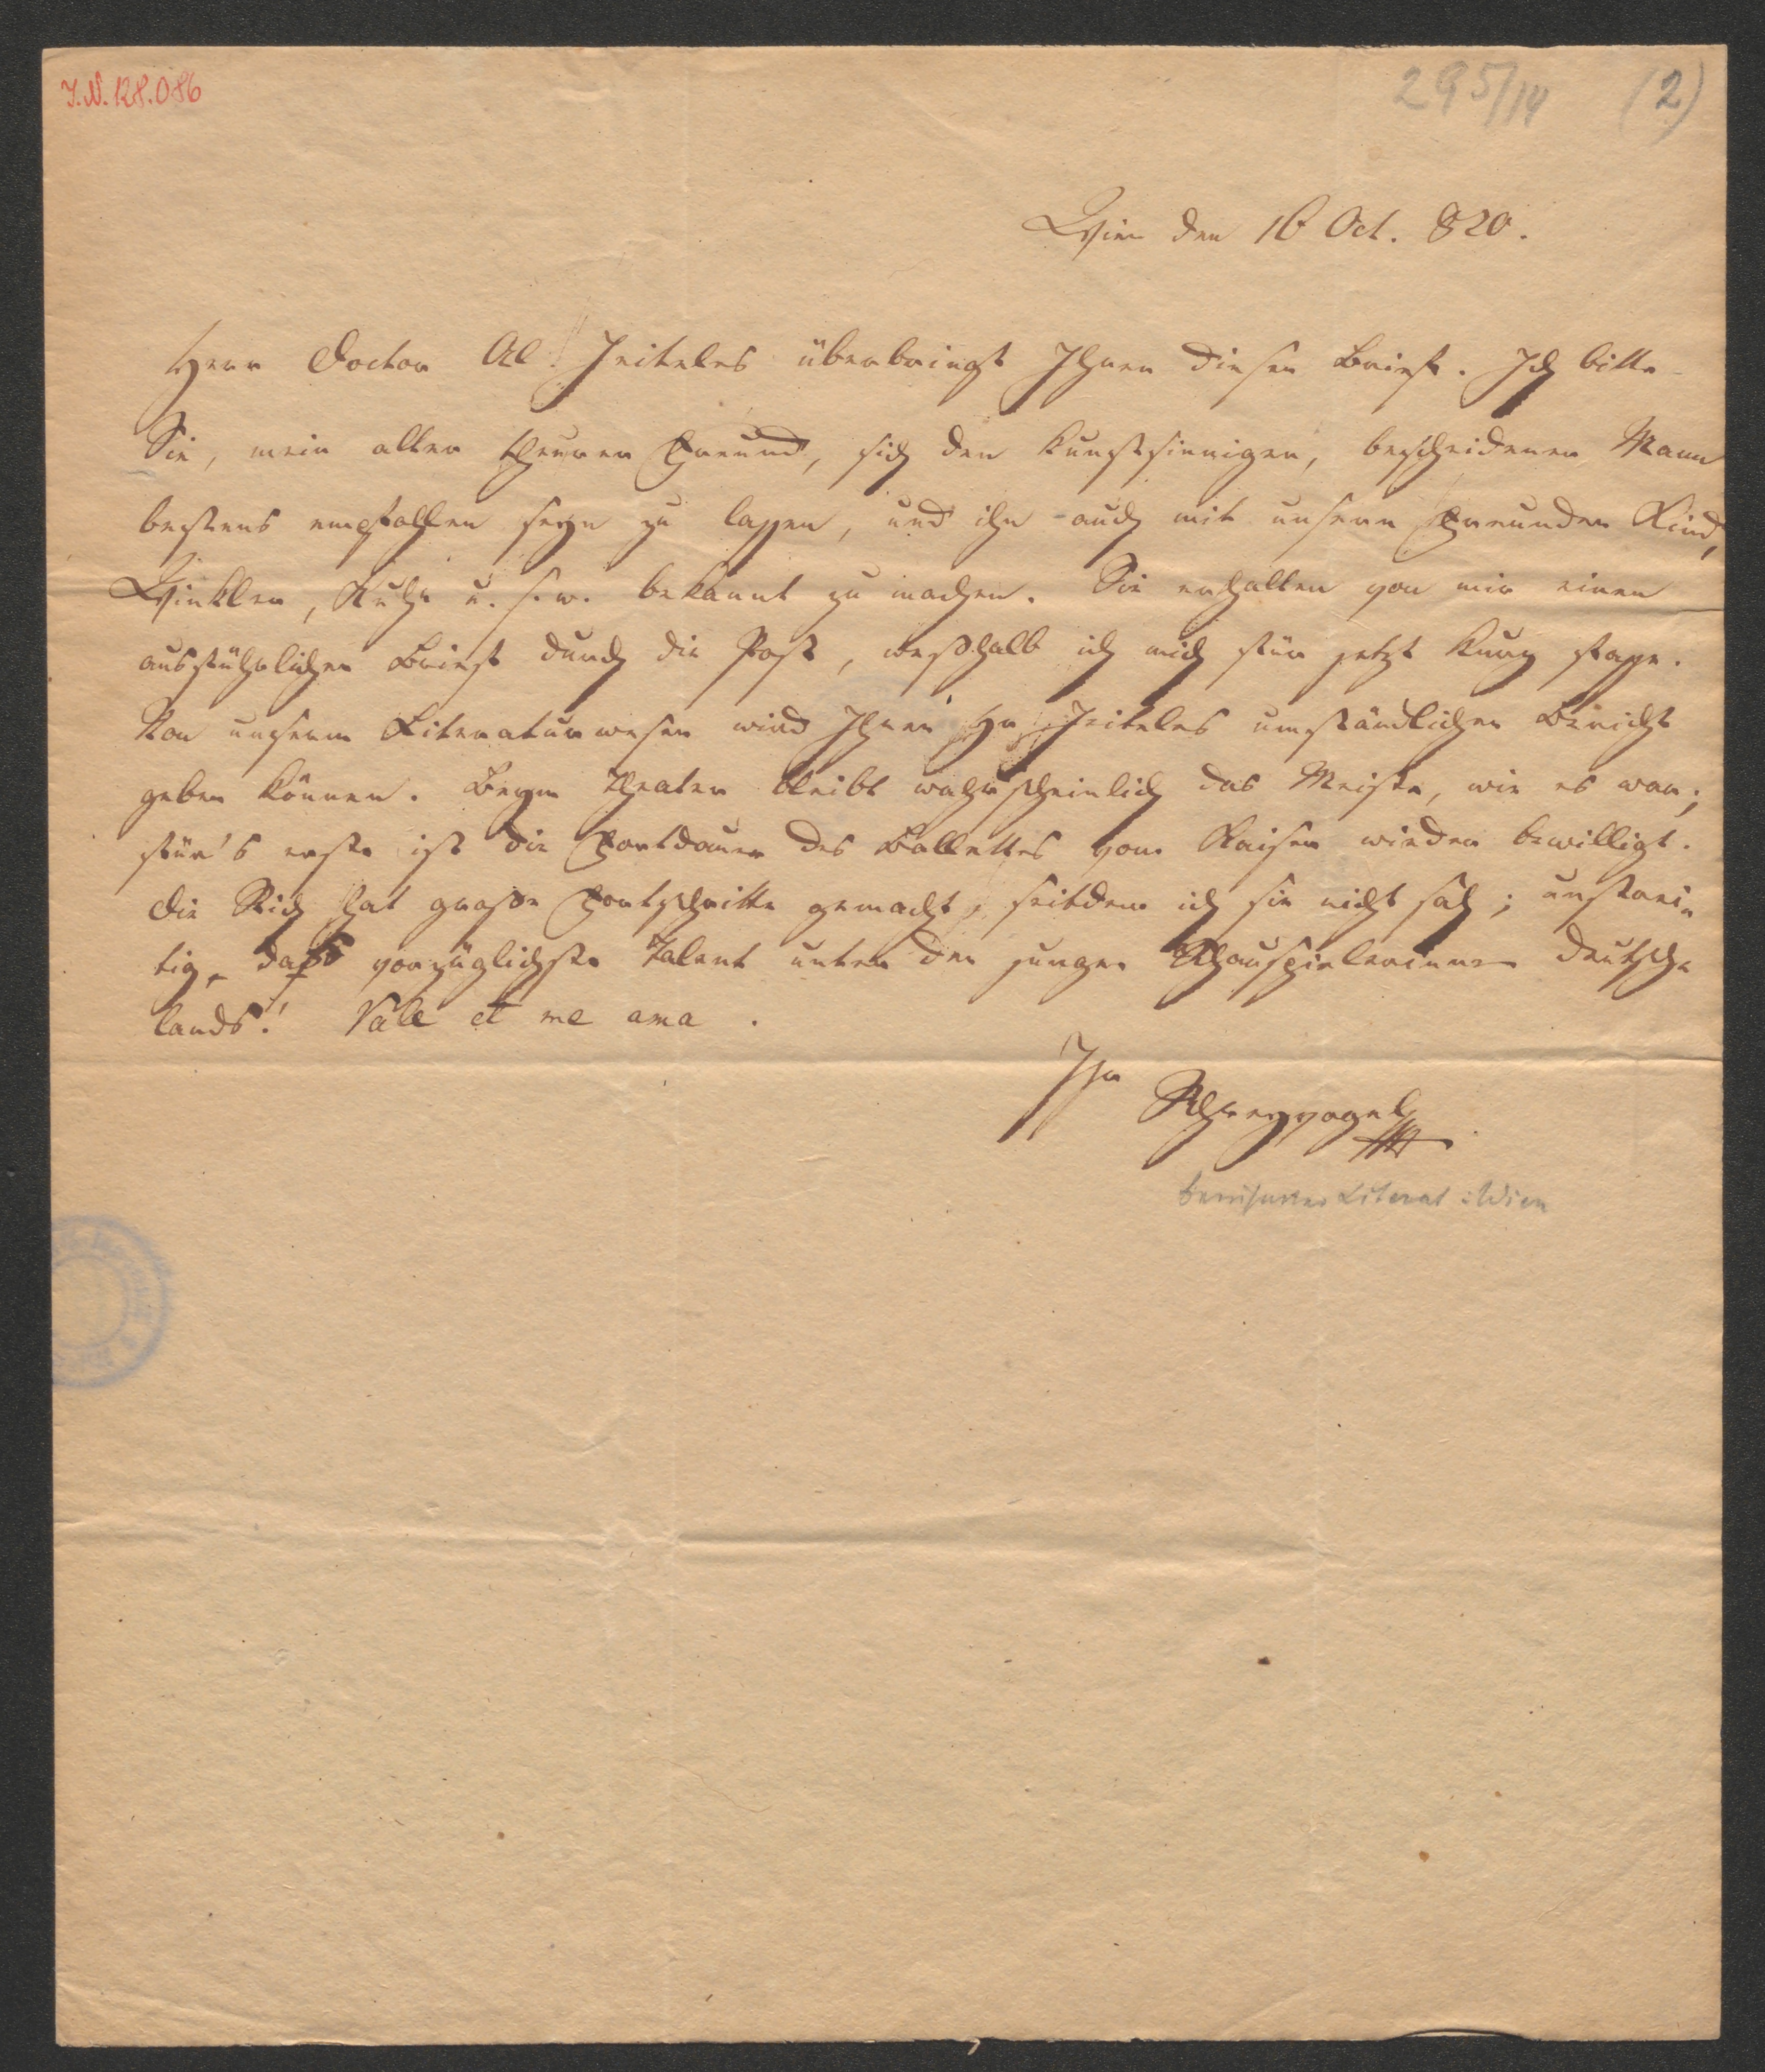 J.N. 128.086
295/14 (2)
Wien den 16 Oct. 820.
Herr Doctor Al. Jeiteles überbringt Ihnen diesen Brief. Ich bitte
Sie, mein alter theurer Freund, sich den kunstsinnigen, bescheidenen Mann
bestens empfohlen seyn zu lassen, und ihn auch mit unsern Freunden Kind,
Winkler, Kuhn u. s. w. bekannt zu machen. Sie erhalten von mir einen
ausführlichen Brief durch die Post, weßhalb ich mich für jetzt kurz fasse.
Von unserm Literaturwesen wird Ihnen Hr Jeiteles umständlichen Bericht
geben können. Beym Theater bleibt wahrscheinlich das Meiste, wie es war;
für's erste ist die Fortdauer des Ballettes vom Kaiser wieder bewilligt.
Die Pich hat große Fortschritte gemacht, seitdem ich sie nicht sah; unstrei-
tig das vorzüglichste Talent unter den jungen Schauspielerinnen Deutsch-
lands! Vale et me ama.
Ihr
Schreyvogel
berühmter Literat: Wien